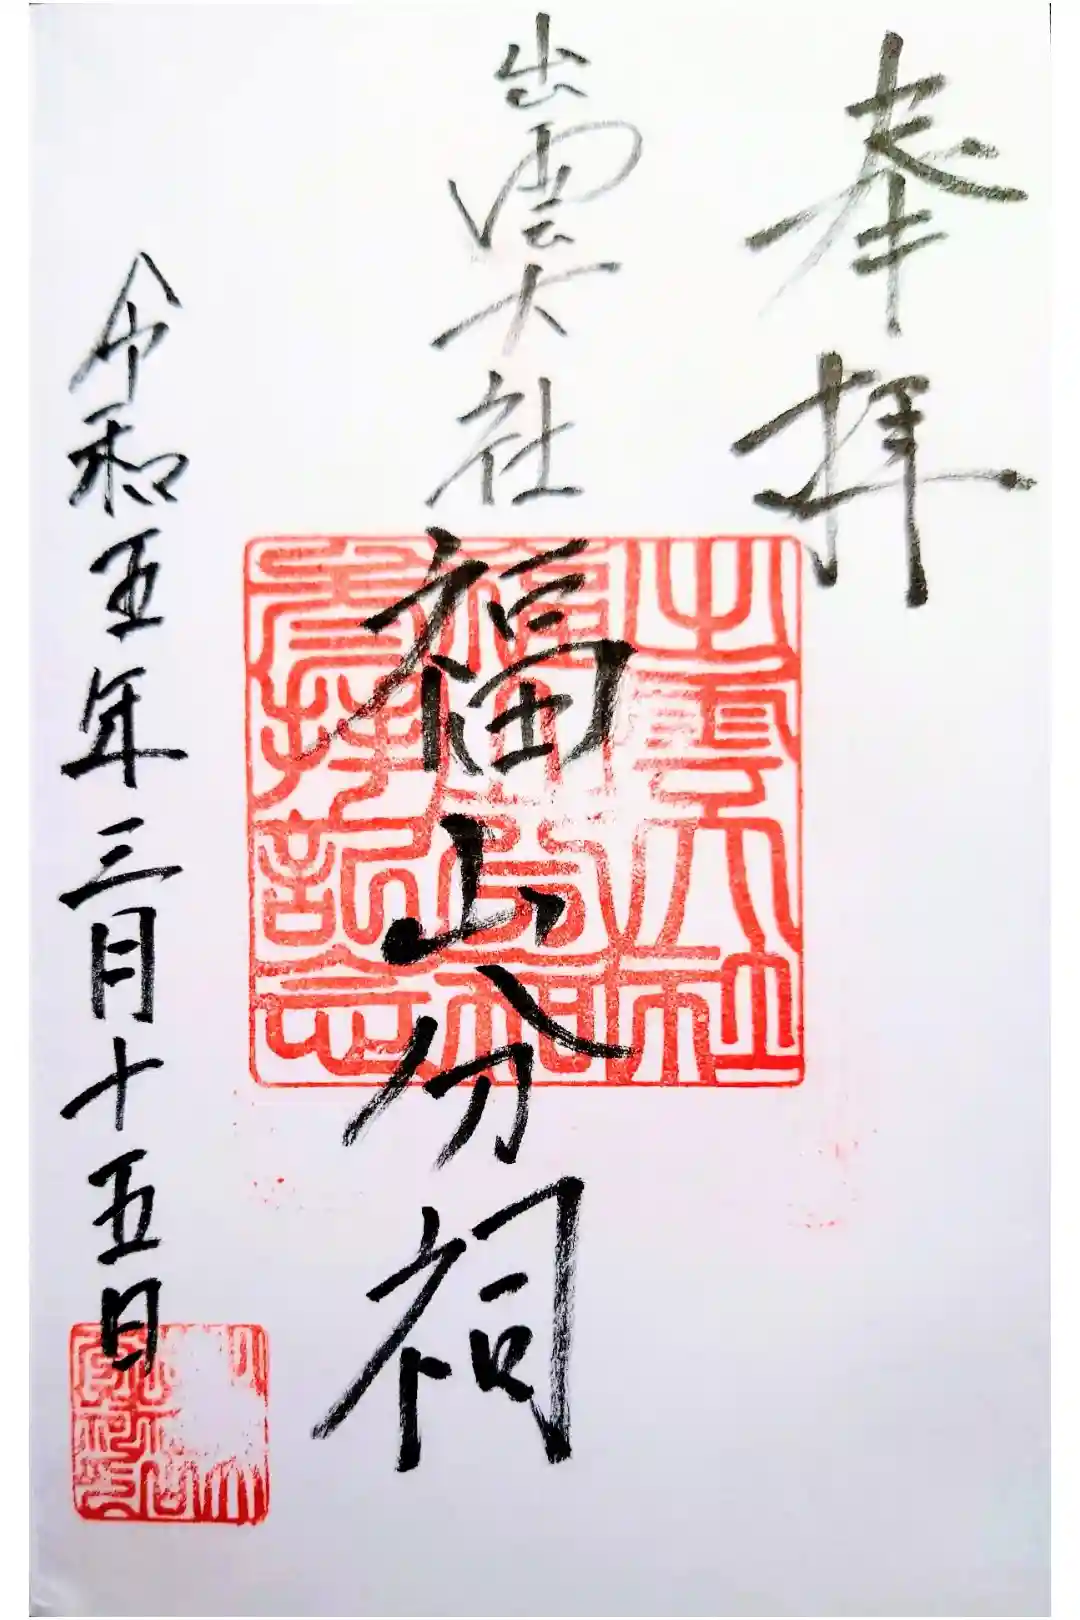 奉拝
出雲大社
福山分祠
令和五年三月十五日
出雲大社
福山分祠
参拝記念